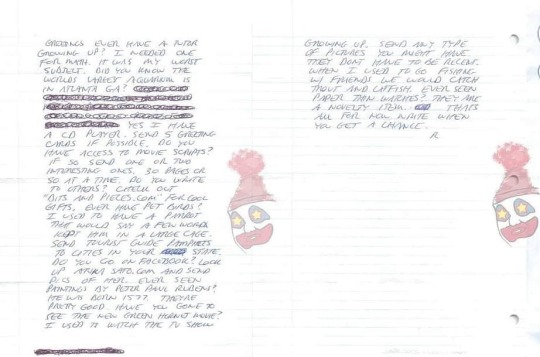 GREETINGS EVER HAVE A TUTOR
GROWING UP? I NEEDED ONE
FOR MATH. IT WAS MY WORST
SUBJECT. DID YOU KNOW THE
WORLDS LARGEST AQUARIUM IS
IN ATLANTA GA?
YES I HAVE
A CD PLAYER. SEND 5 GREETING
CARDS IF POSSIBLE. DO YOU
HAVE ACCESS TO MOVIE SCRIPTS?
IF SO SEND ONE OR TWO
INTERESTING ONES. 30 PAGES OR
SO AT A TIME. DO YOU WRITE
TO OTHERS? CHECK OUT
"BITS AND PIECES.COM" FOR COOL
GIFTS. EVER HAVE PET BIRDS?
I USED TO HAVE A PARROT
THAT WOULD SAY A FEW WORDS
KEPT HIM IN A LARGE CAGE.
SEND TOURIST GUIDE PAMPHLETS
TO CITIES IN YOUR STATE.
DO YOU GO ON FACEBOOK? LOOK
UP .COM AND SEND
PICS OF HER. EVER SEEN
PAINTINGS BY PETER PAUL RUBENS?
HE WAS BORN 1577. THEYRE
PRETTY GOOD HAVE YOU GONE TO
SEE THE NEW GREEN HORNET MOVIE?
I USED TO WATCH THE TV SHOW
GROWING UP. SEND ANY TYPE
OF PICTURES YOU MIGHT HAVE.
THEY DONT HAVE TO BE RECENT.
WHEN I USED TO GO FISHING
W/ FRIENDS WE WOULD CATCH
TROUT AND CATFISH. EVER SEEN
PAPER THIN WATCHES? THEY ARE
A NOVELTY ITEM. THATS
ALL FOR NOW WRITE WHEN
YOU GET A CHANCE.
R.